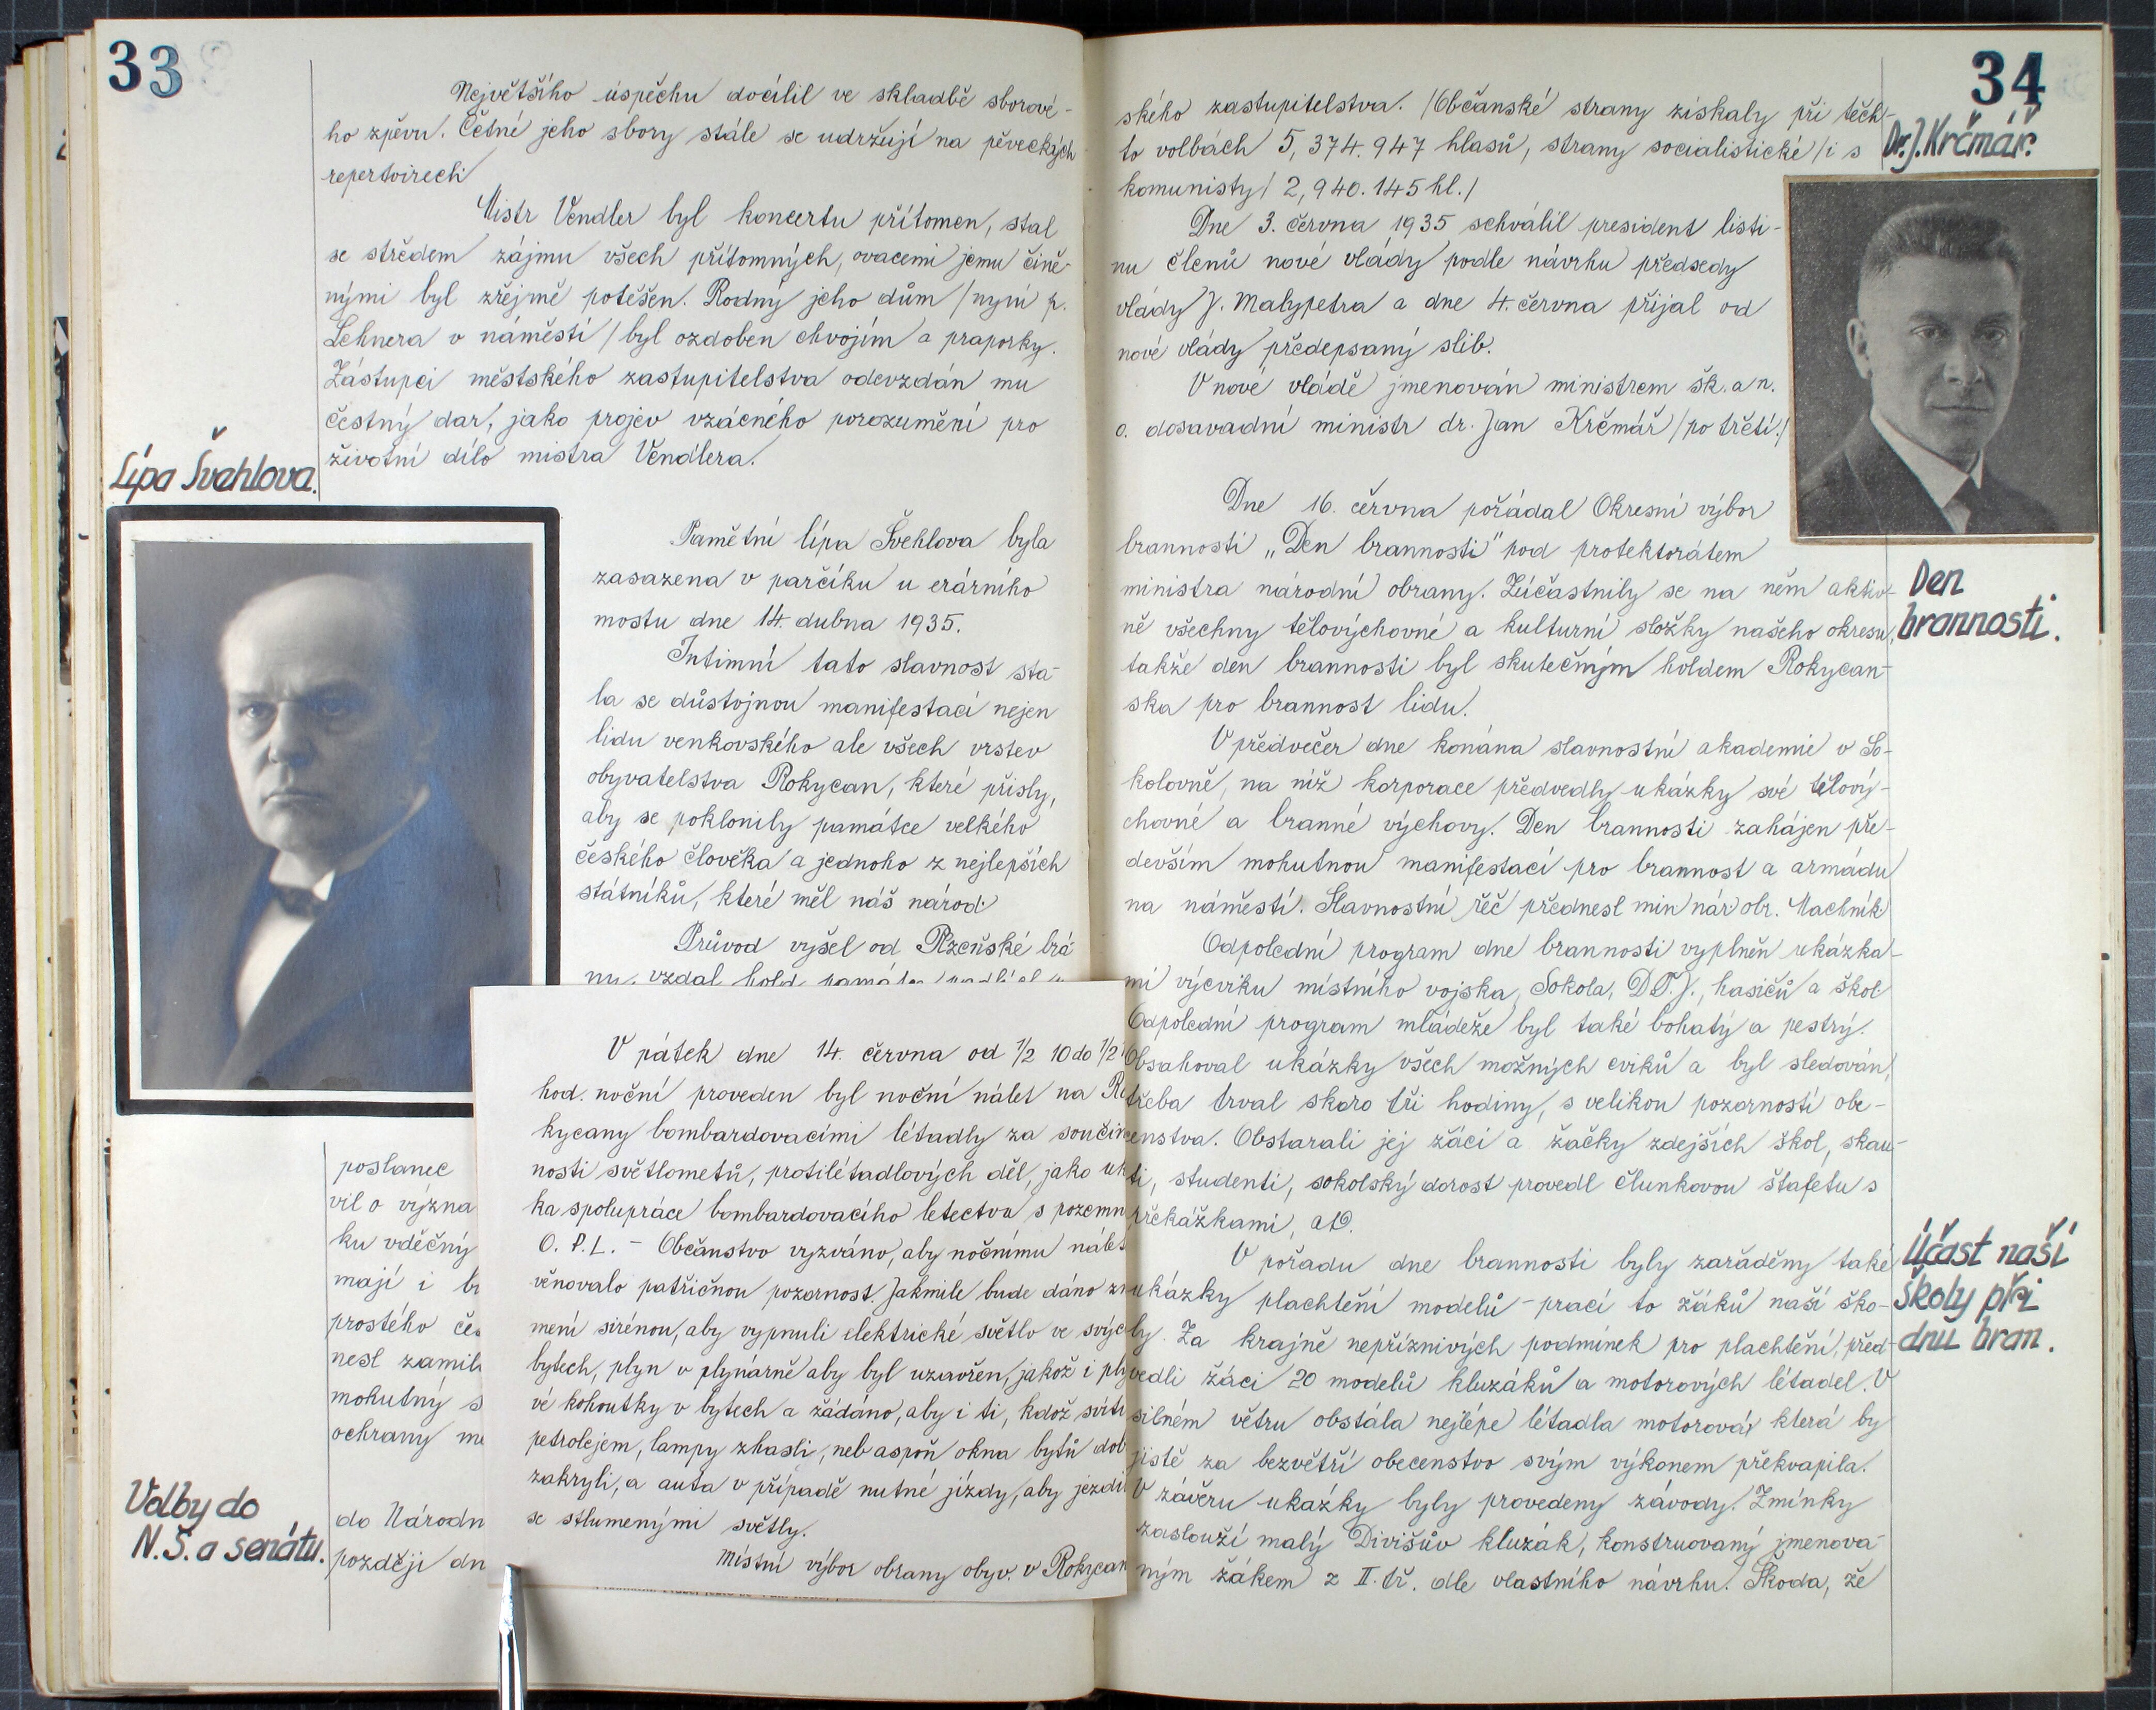 33
Největšího úspěchu docílil ve skladbě sborové-
ho zpěvu. Četné jeho sbory stále se udržují na pěveckých
repertoirech
Mistr Vendler byl koncertu přítomen, stal
se středem zájmu všech přítomných, ovacemi jemu čině-
nými byl zřejmě potěšen. Rodný jeho dům /nyní p.
Lehnera v náměstí/ byl ozdoben chvojím a praporky.
Zástupci městského zastupitelstva odevzdán mu
čestný dar, jako projev vzácného porozumění pro
životní dílo mistra Vendlera.
Lípa Švehlova.
Pamětní lípa Švehlova byla
zasazena v parčíku u erárního
mostu dne 14. dubna 1935.
Intimní tato slavnost sta-
la se důstojnou manifestací nejen
lidu venkovského ale všech vrstev
obyvatelstva Rokycan, které přisly,
aby se poklonily památce velkého
českého člověka a jednoho z nejlepších
státníků, které měl náš národ.
Průvod vyšel od Plzeňské brá-
ny, vzdal hold
poslanec
vil o význa
ku vděčný
mají i
prostého
nesl
mohutný s
ochrany
Volby do
N.S. a senátu.
do Národn
později dn
V pátek dne 14. června od 1/2 10 do 1/2
hod. noční proveden byl noční nálet na
kycany bombardovacími létadly za součin
nosti světlometů, protilétadlových děl, jako uk
ka spolupráce bombardovacího letectva s pozemn
O. P. L. - Občanstvo vyzváno, aby nočnímu nále
věnovalo patřičnou pozornost. Jakmile bude dáno
mení sirénou, aby vypnuli elektrické světlo ve svýc
bytech, plyn v plynárně aby byl uzavřen, jakož i ply
vé kohoutky v bytech a žádáno, aby i ti, kdož svítí
petrolejem, lampy zhasli, neb aspoň okna bytů dob
zakryli, a auta v případě nutné jízdy, aby jezdil
se stlumenými světly.
Místní výbor obrany obyv. v Rokycan
34
Dr. J. Krčmář.
ského zastupitelstva. /Občanské strany získaly při těch-
to volbách 5,374.947 hlasů, strany socialistické /i s
komunisty/ 2,940.145 hl./
Dne 3. června 1935 schválil president listi-
nu členů nové vlády podle návrhu předsedy
vlády J. Malypetra a dne 4. června přijal od
nové vlády předepsaný slib.
V nové vládě jmenován ministrem šk. a n.
o. dosavadní ministr dr. Jan Krčmář /po třetí./
Dne 16. června pořádal Okresní výbor
brannosti „Den brannosti" pod protektorátem
ministra národní obrany. Zúčastnily se na něm aktiv-
ně všechny tělovýchovné a kulturní složky našeho okresu,
takže den brannosti byl skutečným holdem Rokycan-
ska pro brannost lidu.
Den
brannosti.
V předvečer dne konána slavnostní akademie v So-
kolovně, na níž korporace předvedly ukázky své tělový-
chovné a branné výchovy. Den brannosti zahájen pře-
devším mohutnou manifestací pro brannost a armádu
na náměstí. Slavnostní řeč přednesl min nár obr. Machník.
Odpolední program dne brannosti vyplněn ukázka-
mi výcviku místního vojska, Sokola, D.T.J., hasičů a škol.
Odpolední program mládeže byl také bohatý a pestrý.
Obsahoval ukázky všech možných cviků a byl sledován,
třeba trval skoro tři hodiny, s velikou pozorností obe-
censtva. Obstarali jej žáci a žačky zdejších škol, skau-
ti, studenti, sokolský dorost provedl člunkovou štafetu s
překážkami, atd.
V pořadu dne brannosti byly zařáděny také
ukázky plachtění modelů - prací to žáků naší ško-
ly. Za krajně nepříznivých podmínek pro plachtění, před-
vedli žáci 20 modelů kluzáků a motorových létadel. V
silném větru obstála nejlépe létadla motorová, která by
jistě za bezvětří obecenstvo svým výkonem překvapila.
V závěru ukázky byly provedeny závody. Zmínky
zaslouží malý Divišův kluzák, konstruovaný jmenova-
ným žákem z II. tř. dle vlastního návrhu. Škoda, že
Účast naší
školy při
dnu bran.